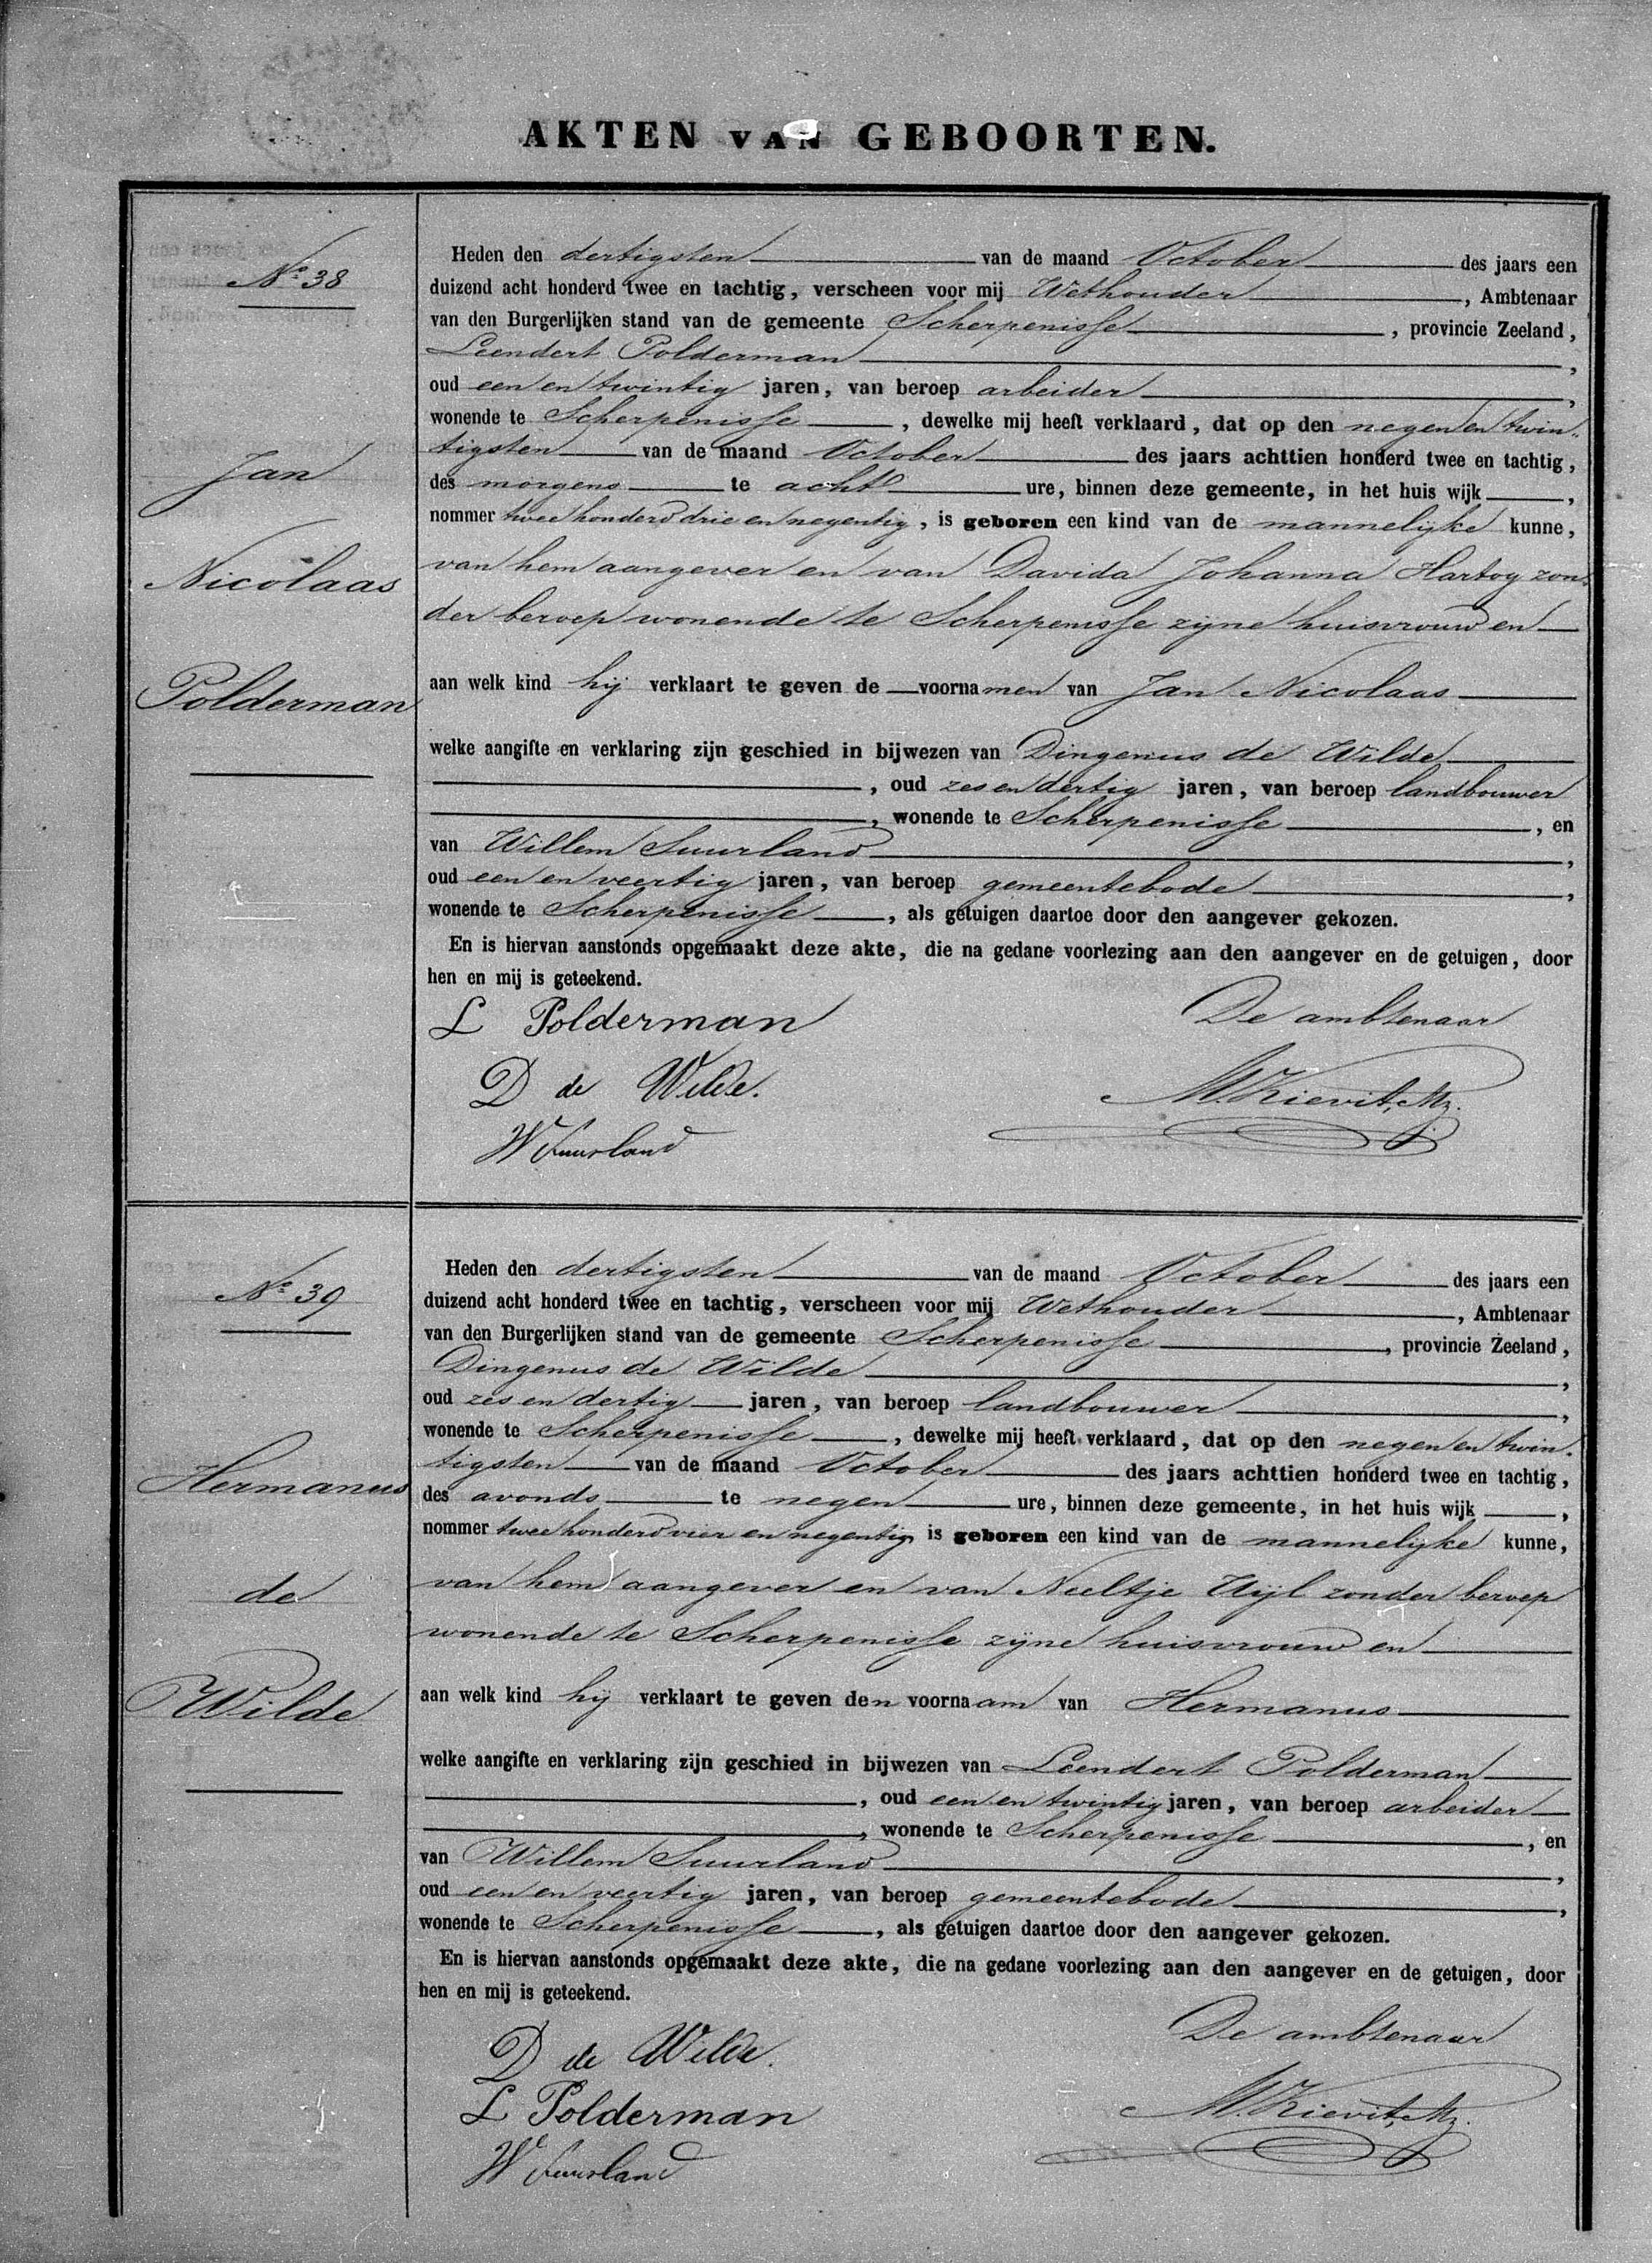 AKTEN VAN GEBOORTEN.
No 38
Jan
Nicolaas
Polderman
Heden den dertigsten van de maand October des jaars een
duizend acht honderd twee en tachtig, verscheen voor mij Wethouder, Ambtenaar
van den Burgerlijken stand van de gemeente Scherpenisse, provincie Zeeland,
Leendert Polderman,
oud een en twintig jaren, van beroep arbeider,
wonende te Scherpenisse, dewelke mij heeft verklaard, dat op den negen en twin-
tigsten van de maand October des jaars achttien honderd twee en tachtig,
des morgens te acht ure, binnen deze gemeente, in het huis wijk,
nommer twee honderd drie en negentig, is geboren een kind van de mannelijke kunne,
van hem aangever en van Davida Johanna Hartog zon-
der beroep wonende te Scherpenisse zijne huisvrouw en
aan welk kind hij verklaart te geven de voornamen van Jan Nicolaas
welke aangifte en verklaring zijn geschied in bijwezen van Dingenus de Wilde
, oud zes en dertig jaren, van beroep landbouwer
, wonende te Scherpenisse, en
van Willem Suurland,
oud een en veertig jaren, van beroep gemeentebode,
wonende te Scherpenisse, als getuigen daartoe door den aangever gekozen.
En is hiervan aanstonds opgemaakt deze akte, die na gedane voorlezing aan den aangever en de getuigen, door
hen en mij is geteekend.
L Polderman
De ambtenaar
D de Wilde.
M. Kievit, Mz.
W Suurland
No 39
Hermanus
de
Wilde
Heden den dertigsten van de maand October des jaars een
duizend acht honderd twee en tachtig, verscheen voor mij Wethouder, Ambtenaar
van den Burgerlijken stand van de gemeente Scherpenisse, provincie Zeeland,
Dingenus de Wilde,
oud zes en dertig jaren, van beroep landbouwer,
wonende te Scherpenisse, dewelke mij heeft verklaard, dat op den negen en twin-
tigsten van de maand October des jaars achttien honderd twee en tachtig,
des avonds te negen ure, binnen deze gemeente, in het huis wijk,
nommer twee honderd vier en negentig, is geboren een kind van de mannelijke kunne,
van hem aangever en van Neeltje Uijl zonder beroep
wonende te Scherpenisse zijne huisvrouw en
aan welk kind hij verklaart te geven den voornaam van Hermanus
welke aangifte en verklaring zijn geschied in bijwezen van Leendert Polderman
, oud een en twintig jaren, van beroep arbeider
, wonende te Scherpenisse, en
van Willem Suurland,
oud een en veertig jaren, van beroep gemeentebode,
wonende te Scherpenisse, als getuigen daartoe door den aangever gekozen.
En is hiervan aanstonds opgemaakt deze akte, die na gedane voorlezing aan den aangever en de getuigen, door
hen en mij is geteekend.
De ambtenaar
D de Wilde.
L Polderman
M. Kievit, Mz.
W Suurland